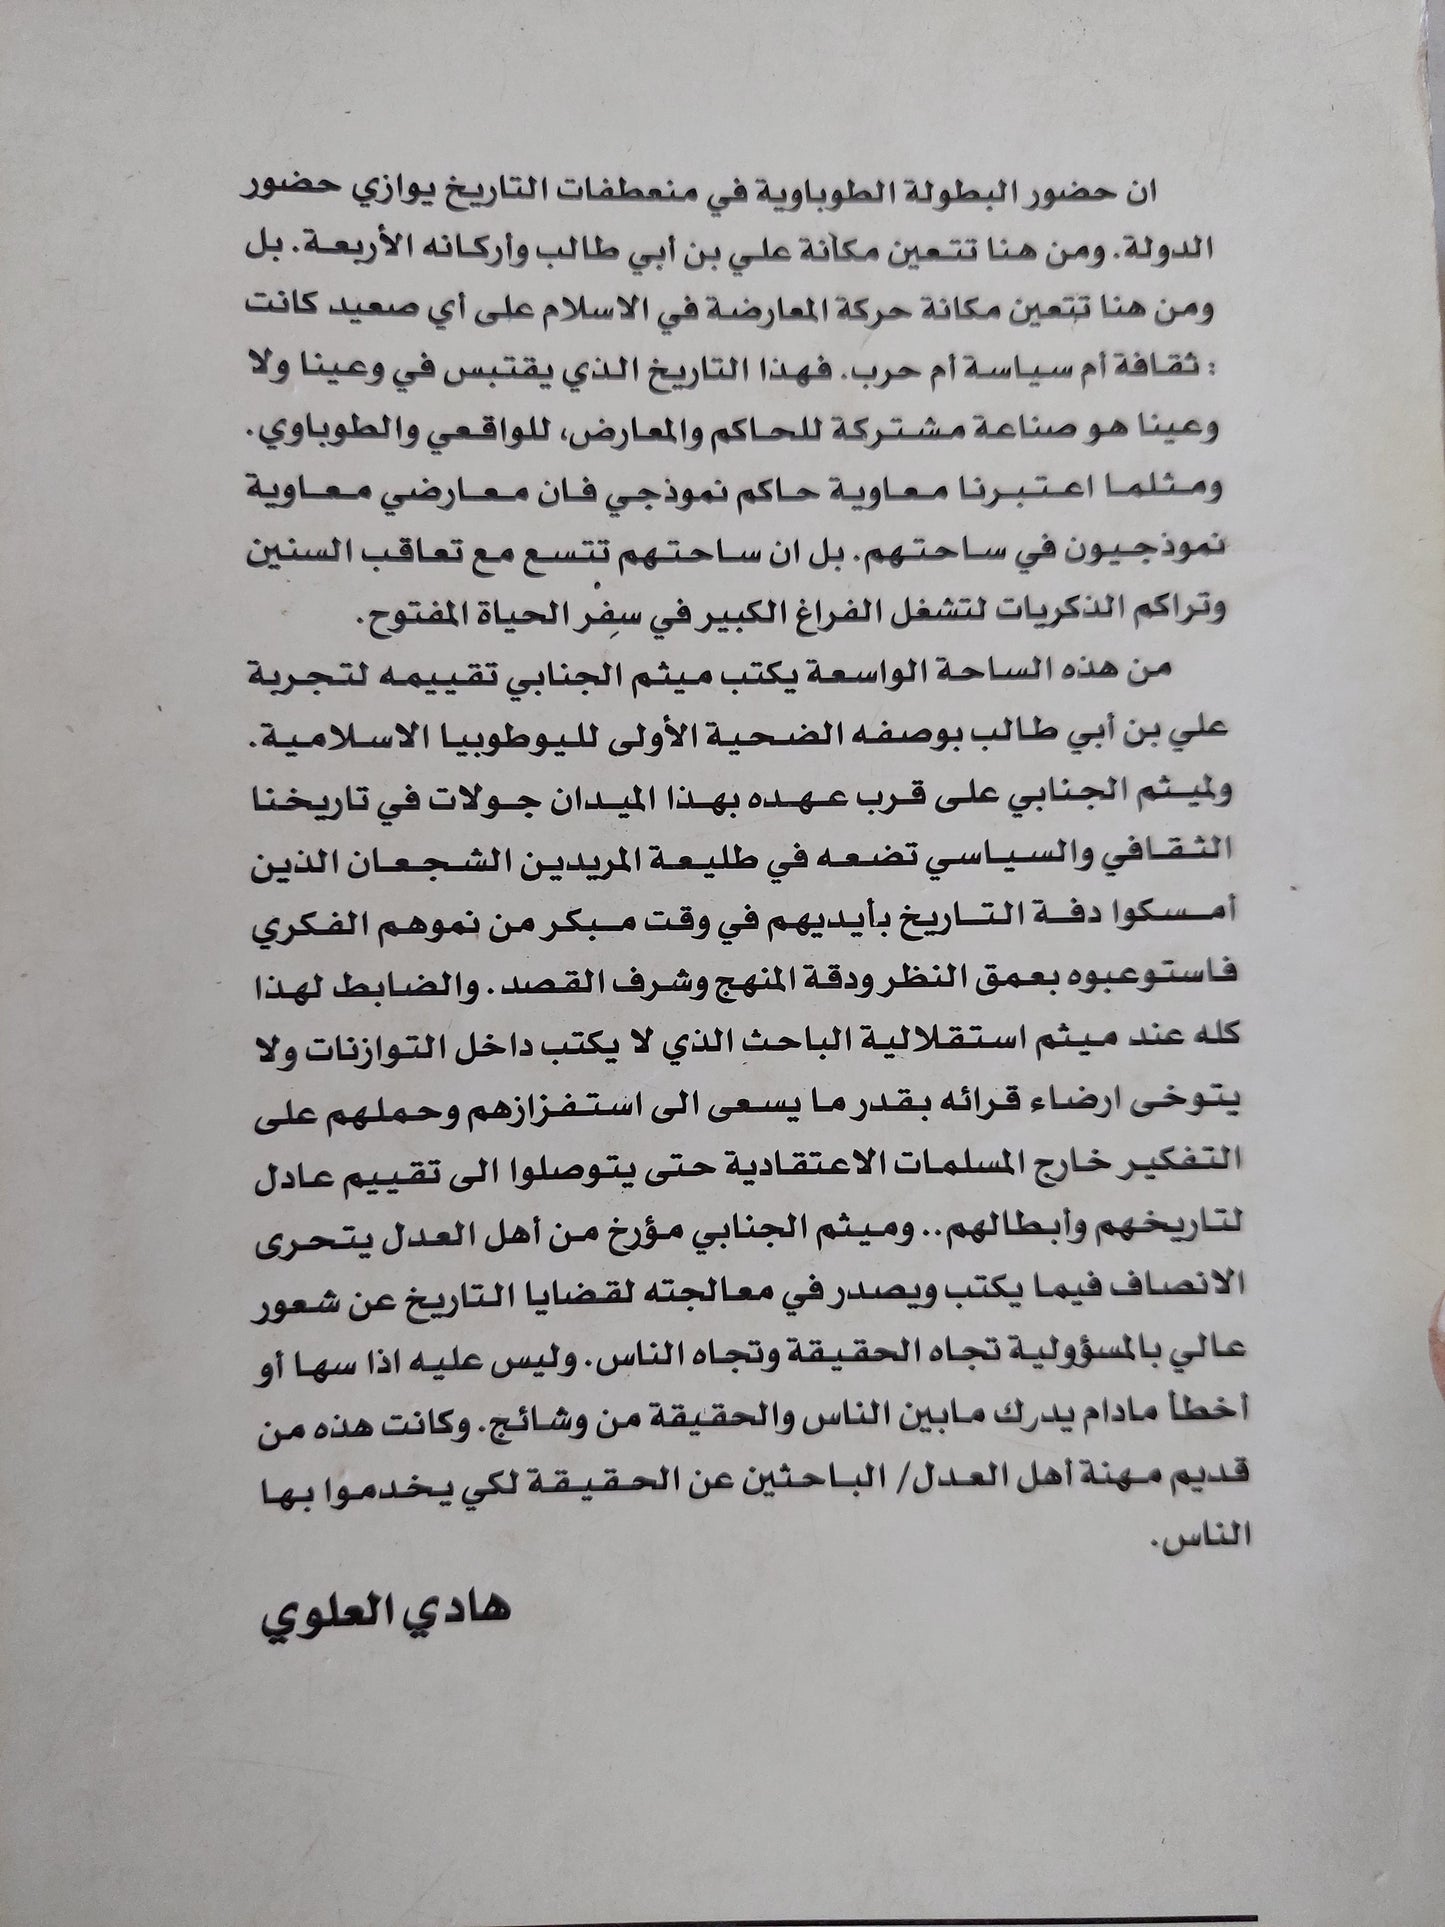 ان حضور البطولة الطوباوية في منعطفات التاريخ يوازي حضور
الدولة. ومن هنا تتعين مكانة علي بن أبي طالب وأركانه الأربعة. بل
ومن هنا تتعين مكانة حركة المعارضة في الاسلام على أي صعيد كانت
: ثقافة أم سياسة أم حرب. فهذا التاريخ الذي يقتبس في وعينا ولا
وعينا هو صناعة مشتركة للحاكم والمعارض، للواقعي والطوباوي.
ومثلما اعتبرنا معاوية حاكم نموذجي فان معارضي معاوية
نموذجيون في ساحتهم. بل ان ساحتهم تتسع مع تعاقب السنين
وتراكم الذكريات لتشغل الفراغ الكبير في سِفْر الحياة المفتوح.
من هذه الساحة الواسعة يكتب ميثم الجنابي تقييمه لتجربة
علي بن أبي طالب بوصفه الضحية الأولى لليوطوبيا الاسلامية.
ولميثم الجنابي على قرب عهده بهذا الميدان جولات في تاريخنا
الثقافي والسياسي تضعه في طليعة المريدين الشجعان الذين
أمسكوا دفة التاريخ بأيديهم في وقت مبكر من نموهم الفكري
فاستوعبوه بعمق النظر ودقة المنهج وشرف القصد. والضابط لهذا
كله عند ميثم استقلالية الباحث الذي لا يكتب داخل التوازنات ولا
يتوخى ارضاء قرائه بقدر ما يسعى الى استفزازهم وحملهم على
التفكير خارج المسلمات الاعتقادية حتى يتوصلوا الى تقييم عادل
لتاريخهم وأبطالهم.. وميثم الجنابي مؤرخ من أهل العدل يتحرى
الانصاف فيما يكتب ويصدر في معالجته لقضايا التاريخ عن شعور
عالي بالمسؤولية تجاه الحقيقة وتجاه الناس. وليس عليه اذا سها أو
أخطأ مادام يدرك مابين الناس والحقيقة من وشائج. وكانت هذه من
قديم مهنة أهل العدل/ الباحثين عن الحقيقة لكي يخدموا بها
الناس.
هادي العلوي